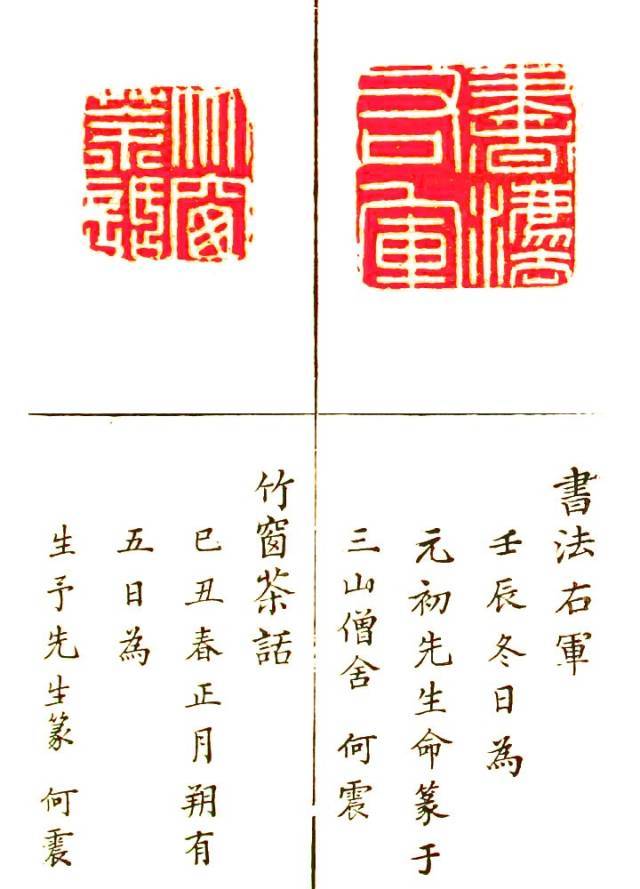 書灋右軍
書法右軍
壬辰冬日為
元初先生命篆于
三山僧舍 何震
竹窗茶話
竹窗茶話
巳丑春正月朔有
五日為
生予先生篆 何震